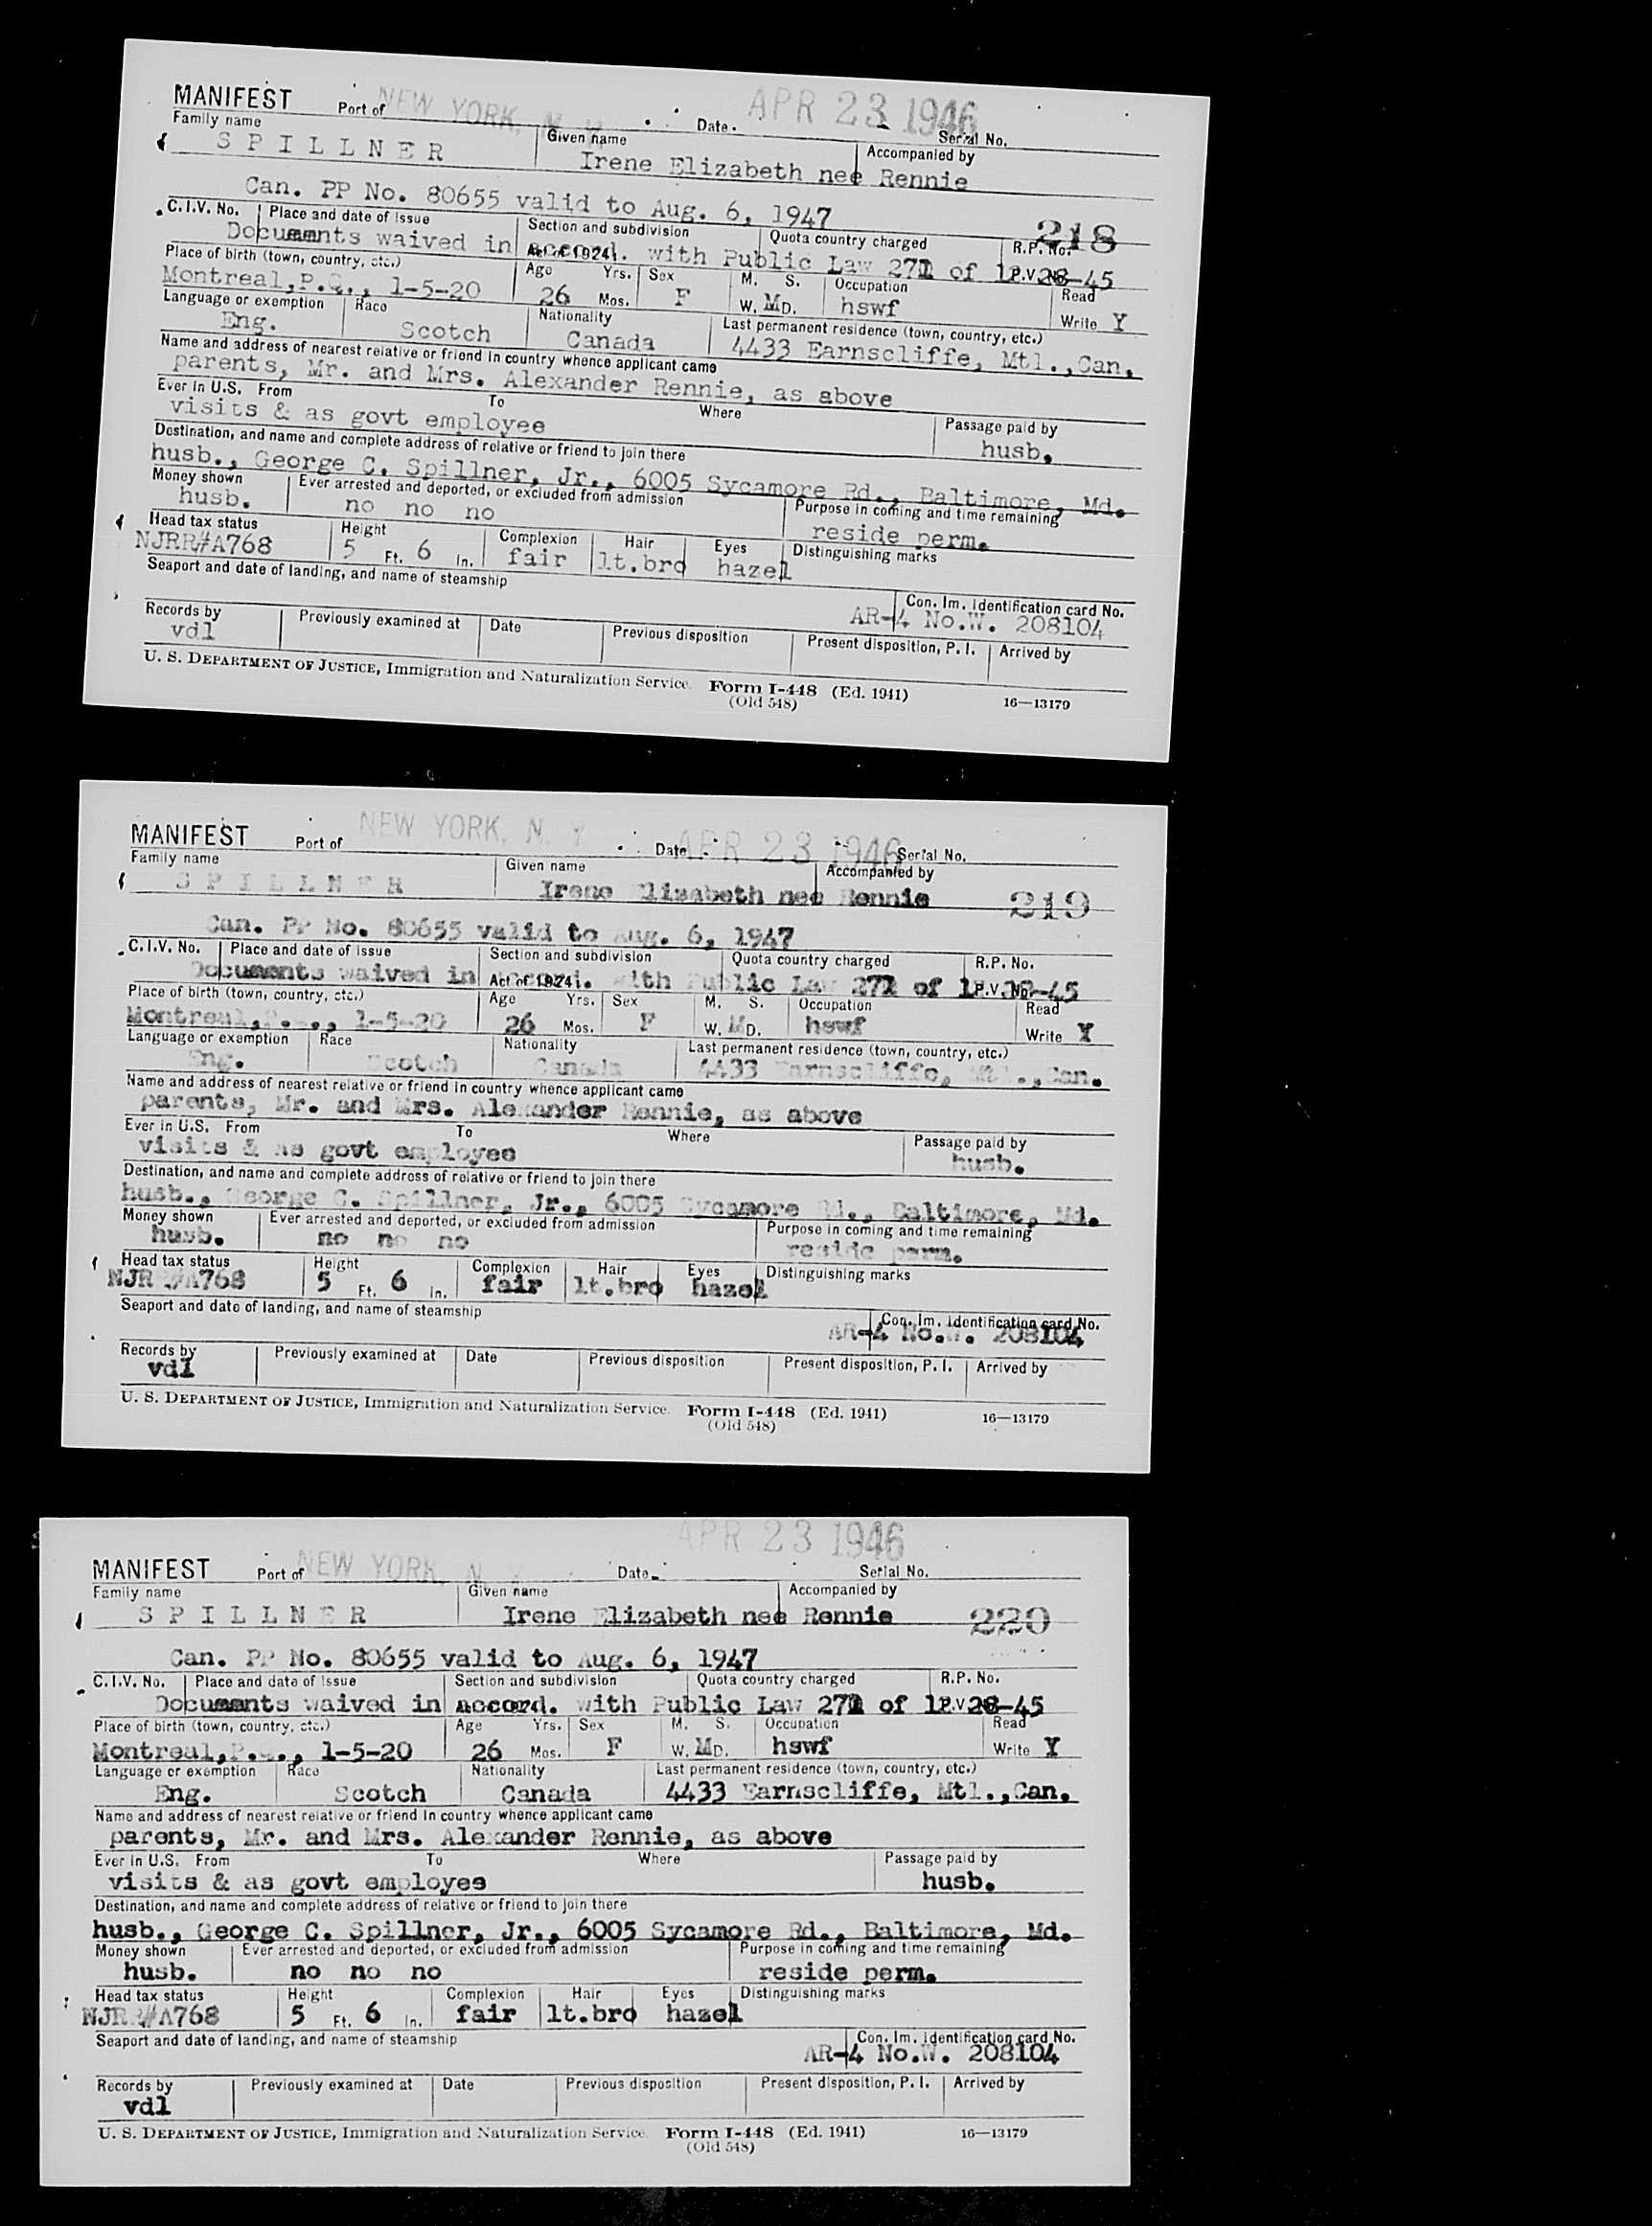 MANIFEST Port of NEW YORK, N. Y. Date APR 23 1946 Serial No.
Family name Given name Accompanied by
SPILLNER Irene Elizabeth nee Rennie
218
Can. PP No. 80655 valid to Aug. 6, 1947
C.I.V. No. Place and date of issue Section and subdivision Quota country charged R.P. No.
Documents waived in accord. with Public Law 271 of 12-28-45
Act of 1924 P.V. No.
Place of birth (town, country, etc.) Age Yrs. Sex M. S. Occupation Read
Montreal,P.Q., 1-5-20 26 Mos. F W. M D. hswf Write Y
Language or exemption Race Nationality Last permanent residence (town, country, etc.)
Eng. Scotch Canada 4433 Earnscliffe, Mtl.,Can.
Name and address of nearest relative or friend in country whence applicant came
parents, Mr. and Mrs. Alexander Rennie, as above
Ever in U.S. From To Where Passage paid by
visits & as govt employee husb.
Destination, and name and complete address of relative or friend to join there
husb., George C. Spillner, Jr., 6005 Sycamore Rd., Baltimore, Md.
Money shown Ever arrested and deported, or excluded from admission Purpose in coming and time remaining
husb. no no no reside perm.
Head tax status Height Complexion Hair Eyes Distinguishing marks
NJRR#A768 5 Ft. 6 In. fair lt.bro hazel
Seaport and date of landing, and name of steamship Con. Im. Identification card No.
AR-4 No.W. 208104
Records by Previously examined at Date Previous disposition Present disposition, P. I. Arrived by
vdl
U. S. DEPARTMENT OF JUSTICE, Immigration and Naturalization Service. Form I-448 (Ed. 1941) 16—13179
(Old 548)
MANIFEST Port of NEW YORK, N. Y. Date APR 23 1946 Serial No.
Family name Given name Accompanied by
SPILLNER Irene Elizabeth nee Rennie 219
Can. PP No. 80655 valid to Aug. 6, 1947
C.I.V. No. Place and date of issue Section and subdivision Quota country charged R.P. No.
Documents waived in accord. with Public Law 271 of 12-28-45
Act of 1924 P.V. No.
Place of birth (town, country, etc.) Age Yrs. Sex M. S. Occupation Read
Montreal,P.Q., 1-5-20 26 Mos. F W. M D. hswf Write Y
Language or exemption Race Nationality Last permanent residence (town, country, etc.)
Eng. Scotch Canada 4433 Earnscliffe, Mtl.,Can.
Name and address of nearest relative or friend in country whence applicant came
parents, Mr. and Mrs. Alexander Rennie, as above
Ever in U.S. From To Where Passage paid by
visits & as govt employee husb.
Destination, and name and complete address of relative or friend to join there
husb., George C. Spillner, Jr., 6005 Sycamore Rd., Baltimore, Md.
Money shown Ever arrested and deported, or excluded from admission Purpose in coming and time remaining
husb. no no no reside perm.
Head tax status Height Complexion Hair Eyes Distinguishing marks
NJRR#A768 5 Ft. 6 In. fair lt.bro hazel
Seaport and date of landing, and name of steamship Con. Im. Identification card No.
AR-4 No.W. 208104
Records by Previously examined at Date Previous disposition Present disposition, P. I. Arrived by
vdl
U. S. DEPARTMENT OF JUSTICE, Immigration and Naturalization Service. Form I-448 (Ed. 1941) 16—13179
(Old 548)
MANIFEST Port of NEW YORK N. Y. Date APR 23 1946 Serial No.
Family name Given name Accompanied by
SPILLNER Irene Elizabeth nee Rennie 220
Can. PP No. 80655 valid to Aug. 6, 1947
C.I.V. No. Place and date of issue Section and subdivision Quota country charged R.P. No.
Documents waived in accord. with Public Law 271 of 12-28-45
P.V. No.
Place of birth (town, country, etc.) Age Yrs. Sex M. S. Occupation Read
Montreal,P.Q., 1-5-20 26 Mos. F W. M D. hswf Write Y
Language or exemption Race Nationality Last permanent residence (town, country, etc.)
Eng. Scotch Canada 4433 Earnscliffe, Mtl.,Can.
Name and address of nearest relative or friend in country whence applicant came
parents, Mr. and Mrs. Alexander Rennie, as above
Ever in U.S. From To Where Passage paid by
visits & as govt employee husb.
Destination, and name and complete address of relative or friend to join there
husb., George C. Spillner, Jr., 6005 Sycamore Rd., Baltimore, Md.
Money shown Ever arrested and deported, or excluded from admission Purpose in coming and time remaining
husb. no no no reside perm.
Head tax status Height Complexion Hair Eyes Distinguishing marks
NJRR#A768 5 Ft. 6 In. fair lt.bro hazel
Seaport and date of landing, and name of steamship Con. Im. Identification card No.
AR-4 No.W. 208104
Records by Previously examined at Date Previous disposition Present disposition, P. I. Arrived by
vdl
U. S. DEPARTMENT OF JUSTICE, Immigration and Naturalization Service. Form I-448 (Ed. 1941) 16—13179
(Old 548)